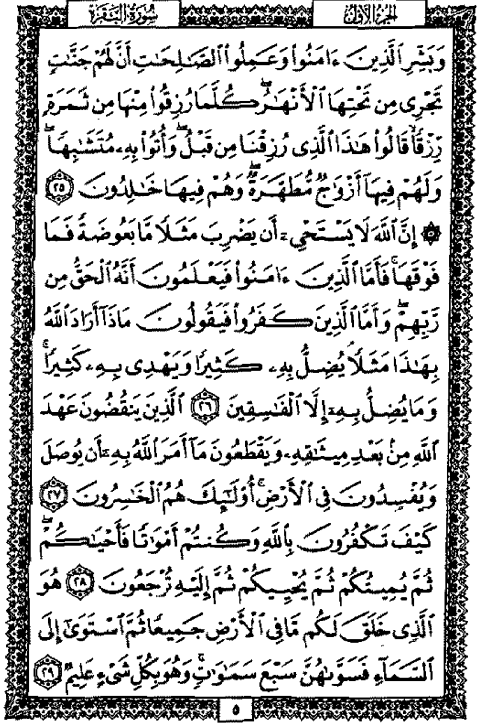 الجزء الأول
سورة البقرة
وَبَشِّرِ الَّذِينَ ءَامَنُوا وَعَمِلُوا الصَّالِحَاتِ أَنَّ لَهُمْ جَنَّاتٍ
تَجْرِي مِن تَحْتِهَا الْأَنْهَارُ ۖ كُلَّمَا رُزِقُوا مِنْهَا مِن ثَمَرَةٍ
رِّزْقًا ۙ قَالُوا هَٰذَا الَّذِي رُزِقْنَا مِن قَبْلُ ۖ وَأُتُوا بِهِ مُتَشَابِهًا ۖ
وَلَهُمْ فِيهَا أَزْوَاجٌ مُّطَهَّرَةٌ ۖ وَهُمْ فِيهَا خَالِدُونَ ٢٥
۞ إِنَّ اللَّهَ لَا يَسْتَحْيِي أَن يَضْرِبَ مَثَلًا مَّا بَعُوضَةً فَمَا
فَوْقَهَا ۚ فَأَمَّا الَّذِينَ ءَامَنُوا فَيَعْلَمُونَ أَنَّهُ الْحَقُّ مِن
رَّبِّهِمْ ۖ وَأَمَّا الَّذِينَ كَفَرُوا فَيَقُولُونَ مَاذَا أَرَادَ اللَّهُ
بِهَٰذَا مَثَلًا ۘ يُضِلُّ بِهِ كَثِيرًا وَيَهْدِي بِهِ كَثِيرًا ۚ
وَمَا يُضِلُّ بِهِ إِلَّا الْفَاسِقِينَ ٢٦ الَّذِينَ يَنقُضُونَ عَهْدَ
اللَّهِ مِن بَعْدِ مِيثَاقِهِ وَيَقْطَعُونَ مَا أَمَرَ اللَّهُ بِهِ أَن يُوصَلَ
وَيُفْسِدُونَ فِي الْأَرْضِ ۚ أُولَٰئِكَ هُمُ الْخَاسِرُونَ ٢٧
كَيْفَ تَكْفُرُونَ بِاللَّهِ وَكُنتُمْ أَمْوَاتًا فَأَحْيَاكُمْ ۖ
ثُمَّ يُمِيتُكُمْ ثُمَّ يُحْيِيكُمْ ثُمَّ إِلَيْهِ تُرْجَعُونَ ٢٨ هُوَ
الَّذِي خَلَقَ لَكُم مَّا فِي الْأَرْضِ جَمِيعًا ثُمَّ اسْتَوَىٰ إِلَى
السَّمَاءِ فَسَوَّاهُنَّ سَبْعَ سَمَاوَاتٍ ۚ وَهُوَ بِكُلِّ شَيْءٍ عَلِيمٌ ٢٩
٥